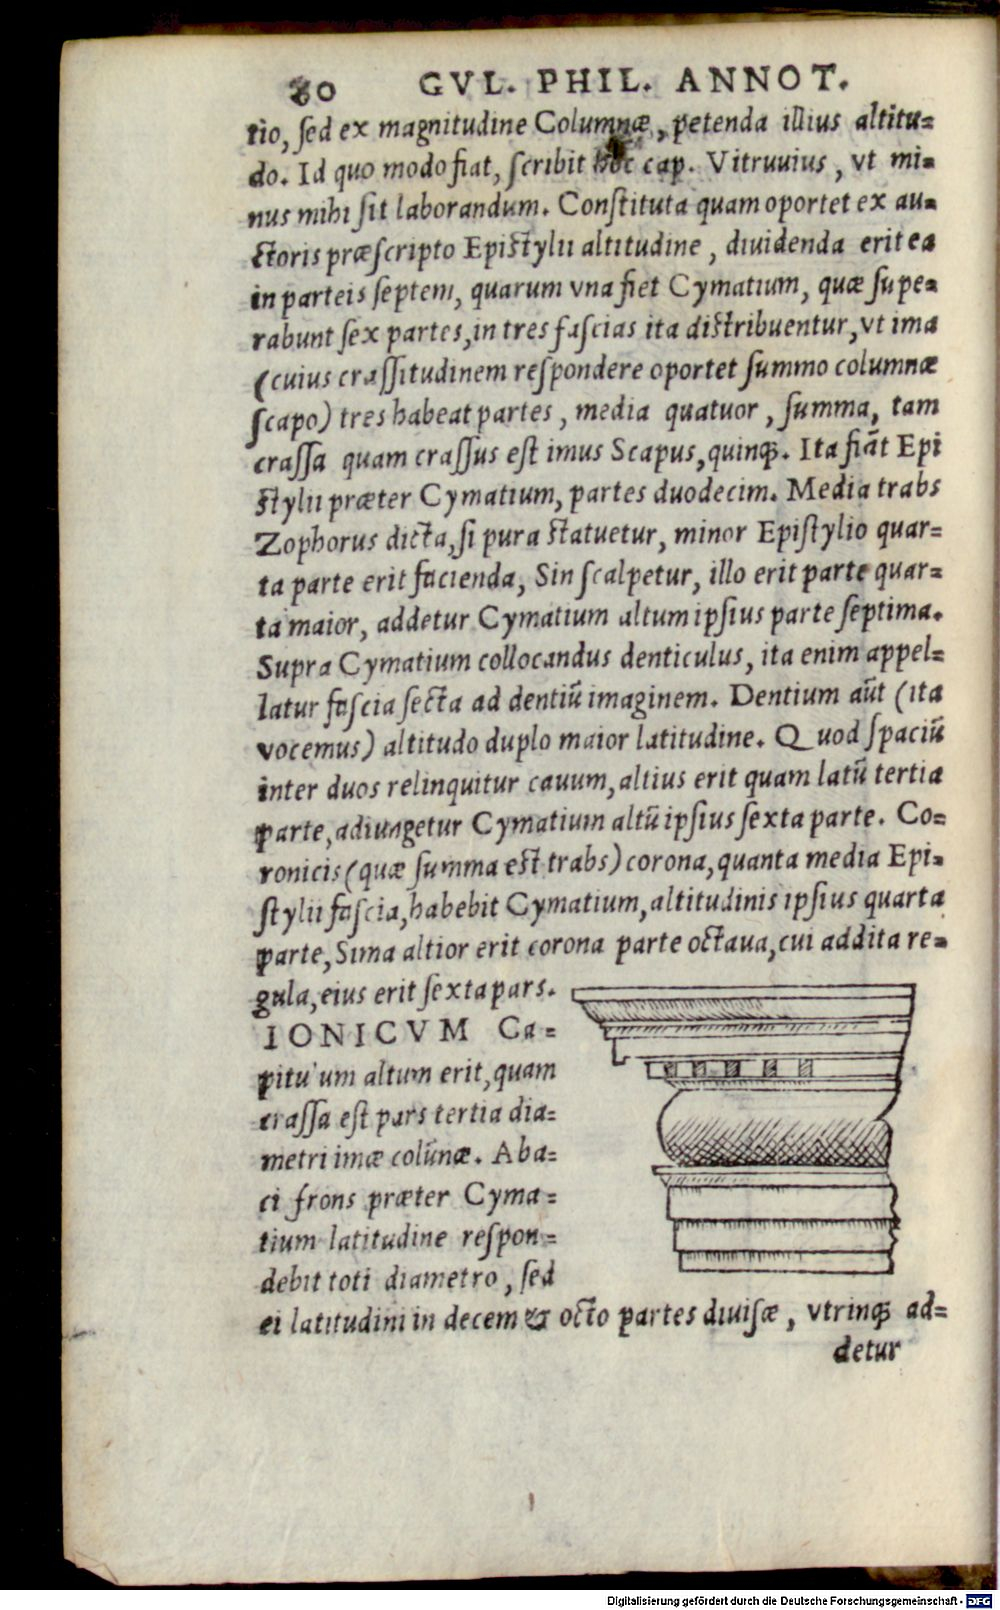 80 GVL. PHIL. ANNOT.
tio, ſed ex magnitudine Columnæ, petenda illius altitu=
do. Id quo modo fiat, ſcribit hoc cap. Vitruuius, vt mi=
nus mihi ſit laborandum. Conſtituta quam oportet ex au=
ctoris præſcripto Epiſtylii altitudine, diuidenda erit ea
in parteis ſeptem, quarum vna fiet Cymatium, quæ ſupe=
rabunt ſex partes, in tres faſcias ita diſtribuentur, vt ima
(cuius craſſitudinem reſpondere oportet ſummo columnæ
ſcapo) tres habeat partes, media quatuor, ſumma, tam
craſſa quam craſſus eſt imus Scapus, quinq́;. Ita fiāt Epi
ſtylii præter Cymatium, partes duodecim. Media trabs
Zophorus dicta, ſi pura ſtatuetur, minor Epiſtylio quar=
ta parte erit facienda, Sin ſcalpetur, illo erit parte quar=
ta maior, addetur Cymatium altum ipſius parte ſeptima.
Supra Cymatium collocandus denticulus, ita enim appel=
latur faſcia ſecta ad dentiū imaginem. Dentium aūt (ita
vocemus) altitudo duplo maior latitudine. Quod ſpaciū
inter duos relinquitur cauum, altius erit quam latū tertia
parte, adiungetur Cymatium altū ipſius ſexta parte. Co=
ronicis (quæ ſumma eſt trabs) corona, quanta media Epi=
ſtylii faſcia, habebit Cymatium, altitudinis ipſius quarta
parte, Sima altior erit corona parte octaua, cui addita re=
gula, eius erit ſexta pars.
IONICVM Ca=
pitulum altum erit, quam
craſſa eſt pars tertia dia=
metri imæ colūnæ. Aba=
ci frons præter Cyma=
tium latitudine reſpon=
debit toti diametro, ſed
ei latitudini in decem & octo partes diuiſæ, vtrinq́; ad=
detur
Digitalisierung gefördert durch die Deutsche Forschungsgemeinschaft - DFG